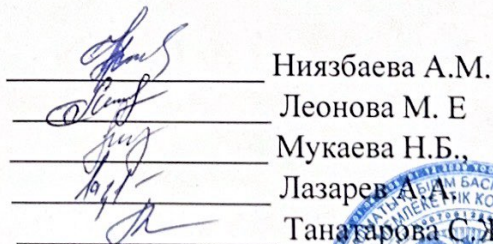 Ниязбаева А.М.
Леонова М. Е
Мукаева Н.Б.,
Лазарев А.А.
Танатарова С.Ж